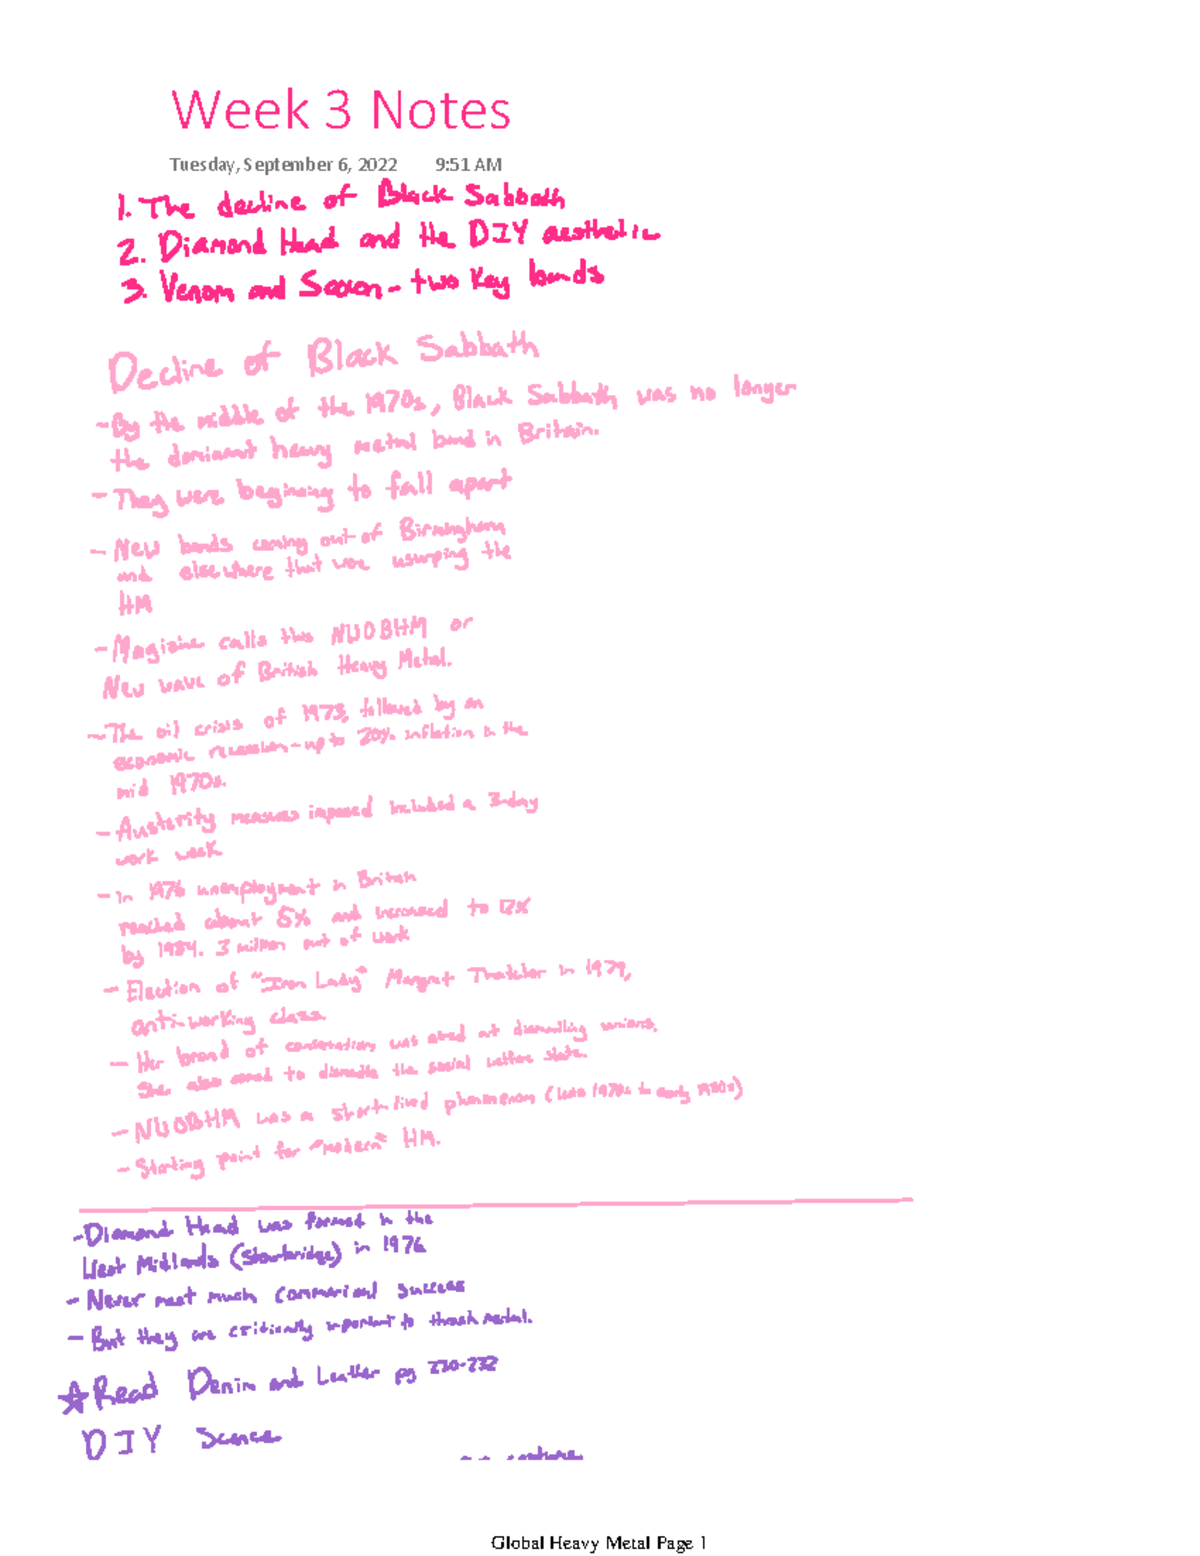 Week 3 Notes
Tuesday, September 6, 2022 9:51 AM
1. The decline of Black Sabbath
2. Diamond Head and the DIY aesthetic
3. Venom and Saxon - two key bands
Decline of Black Sabbath
- By the middle of the 1970s, Black Sabbath was no longer
the dominant heavy metal band in Britain.
- They were beginning to fall apart
- New bands coming out of Birmingham
and elsewhere that were usurping the
HM
- Magizine calls this NWOBHM or
New wave of British Heavy Metal.
- The oil crisis of 1973, followed by an
economic recession - up to 20% inflation in the
mid 1970s.
- Austerity measures imposed included a 3-day
work week
- In 1976 unemployment in Britain
reached about 5% and increased to 12%
by 1984. 3 million out of work
- Election of "Iron Lady" Margret Thatcher in 1979,
anti-working class.
- Her brand of conservatism was aimed at dismantling unions.
She also aimed to dismantle the social welfare state.
- NWOBHM was a short-lived phenomenon (late 1970s to early 1980s)
- Starting point for "modern" HM.
- Diamond Head was formed in the
West Midlands (Stourbridge) in 1976
- Never met much commerical success
- But they are critically important to thrash metal.
☆ Read Denim and Leather pg 230-232
DIY Scence
Global Heavy Metal Page 1